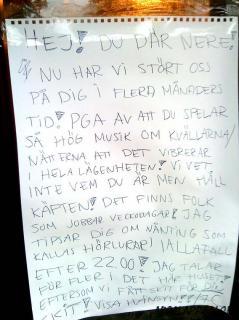 HEJ! DU DÄR NERE!
NU HAR VI STÖRT OSS
PÅ DIG I FLERA MÅNADERS
TID! PGA AV ATT DU SPELAR
SÅ HÖG MUSIK OM KVÄLLARNA/
NÄTTERNA ATT DET VIBRERAR
I HELA LÄGENHETEN! VI VET
INTE VEM DU ÄR MEN HÅLL
KÄFTEN! DET FINNS FOLK
SOM JOBBAR VECKODAGAR! JAG
TIPSAR DIG OM NÅNTING SOM
KALLAS HÖRLURAR! IALLAFALL
EFTER 22.00! JAG TALAR
FÖR FLER I DET HÄR HUSET!
EFTERSOM VI FÅTT SKIT FÖR DIN
SKIT! VISA HÄNSYN!